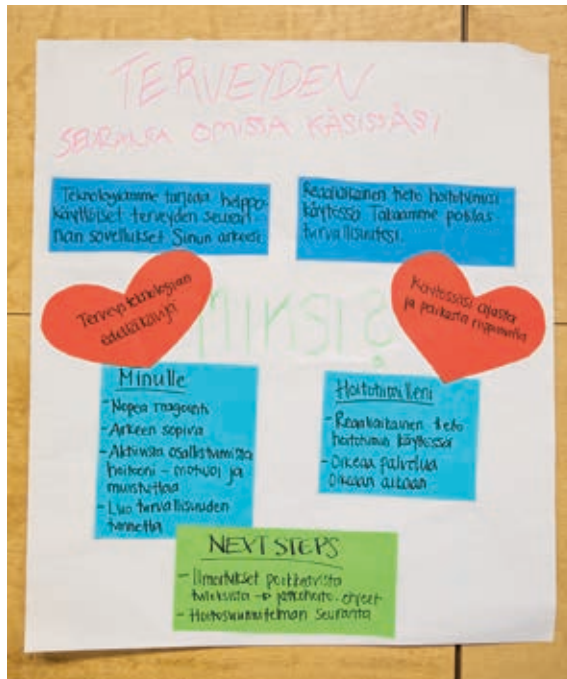 TERVEYDEN
SEURANTA OMISSA KÄSISSÄSI
Teknologiamme tarjoaa helppo-
käyttöiset terveyden seuran-
nan sovellukset Sinun arkeesi
Reaaliaikainen tieto hoitotiimisi
käytössä Takaamme potilas
turvallisuutesi.
Terveysteknologian
edelläkävijä
Käytössäsi ajasta
ja paikasta riippumatta
Minulle
- Nopea reagointi
- Arkeen sopiva
- Aktiivista osallistumista
hoitooni - motivoi ja
muistuttaa
- Luo turvallisuuden
tunnetta
Hoitotiimilleni
- Reaaliaikainen tieto
hoitotiimin käytössä
- Oikeaa palvelua
oikeaan aikaan
NEXT STEPS
- Ilmoitukset poikkeavista
tuloksista → jatkohoito-ohjeet
- Hoitosuunnitelman seuranta